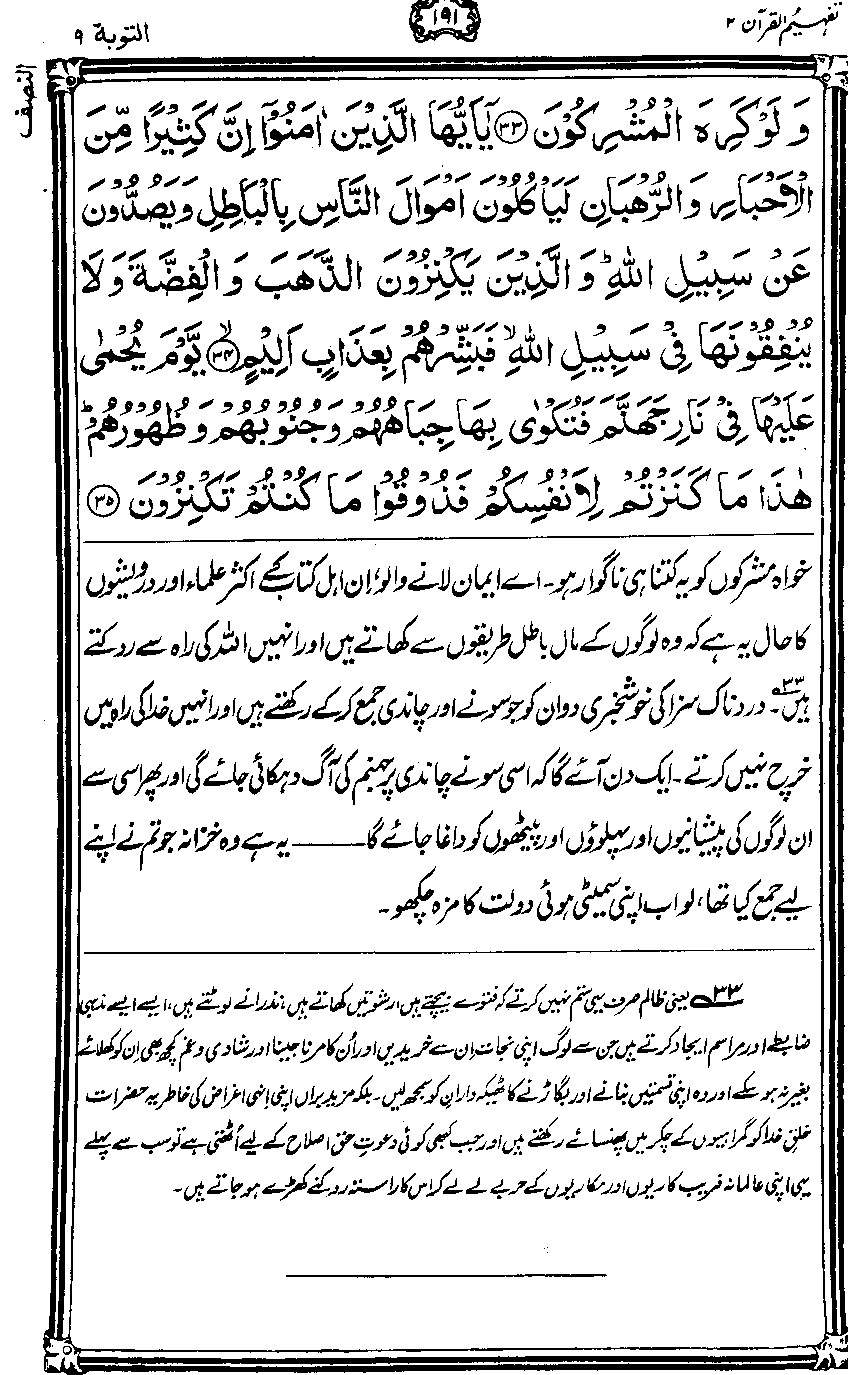 تفہیم القرآن ۲
۱۹۱
التوبة ۹
النصف
وَ لَوْ كَرِهَ الْمُشْرِكُوْنَ ﴿۳۳﴾ يٰۤاَيُّهَا الَّذِيْنَ اٰمَنُوْۤا اِنَّ كَثِيْرًا مِّنَ
الْاَحْبَارِ وَ الرُّهْبَانِ لَيَاْكُلُوْنَ اَمْوَالَ النَّاسِ بِالْبَاطِلِ وَ يَصُدُّوْنَ
عَنْ سَبِيْلِ اللّٰهِؕ وَ الَّذِيْنَ يَكْنِزُوْنَ الذَّهَبَ وَ الْفِضَّةَ وَ لَا
يُنْفِقُوْنَهَا فِيْ سَبِيْلِ اللّٰهِۙ فَبَشِّرْهُمْ بِعَذَابٍ اَلِيْمٍۙ ﴿۳۴﴾ يَّوْمَ يُحْمٰى
عَلَيْهَا فِيْ نَارِ جَهَنَّمَ فَتُكْوٰى بِهَا جِبَاهُهُمْ وَ جُنُوْبُهُمْ وَ ظُهُوْرُهُمْؕ
هٰذَا مَا كَنَزْتُمْ لِاَنْفُسِكُمْ فَذُوْقُوْا مَا كُنْتُمْ تَكْنِزُوْنَ ﴿۳۵﴾
خواہ مشرکوں کو یہ کتنا ہی ناگوار ہو۔ اے ایمان لانے والو، ان اہل کتاب کے اکثر علماء اور درویشوں
کا حال یہ ہے کہ وہ لوگوں کے مال باطل طریقوں سے کھاتے ہیں اور انہیں اللہ کی راہ سے روکتے
ہیں۳۳۔ دردناک سزا کی خوشخبری دو ان کو جو سونے اور چاندی جمع کر کے رکھتے ہیں اور انہیں خدا کی راہ میں
خرچ نہیں کرتے۔ ایک دن آئے گا کہ اسی سونے چاندی پر جہنم کی آگ دہکائی جائے گی اور پھر اسی سے
ان لوگوں کی پیشانیوں اور پہلوؤں اور پیٹھوں کو داغا جائے گا ——— یہ ہے وہ خزانہ جو تم نے اپنے
لیے جمع کیا تھا، لو اب اپنی سمیٹی ہوئی دولت کا مزہ چکھو۔
۳۳ یعنی ظالم صرف یہی ستم نہیں کرتے کہ فتوے بیچتے ہیں، رشوتیں کھاتے ہیں، نذرانے لوٹتے ہیں، ایسے ایسے مذہبی
ضابطے اور مراسم ایجاد کرتے ہیں جن سے لوگ اپنی نجات ان سے خریدیں اور اُن کا مرنا جینا اور شادی و غم کچھ بھی اِن کو کھلائے
بغیر نہ ہو سکے اور وہ اپنی قسمتیں بنانے اور بگاڑنے کا ٹھیکہ دار ان کو سمجھ لیں۔ بلکہ مزید براں اپنی اِنہی اغراض کی خاطر یہ حضرات
خلقِ خدا کو گمراہیوں کے چکر میں پھنسائے رکھتے ہیں اور جب کبھی کوئی دعوتِ حق اصلاح کے لیے اُٹھتی ہے تو سب سے پہلے
یہی اپنی عالمانہ فریب کاریوں اور مکاریوں کے حربے لے لے کر اس کا راستہ روکنے کھڑے ہو جاتے ہیں۔